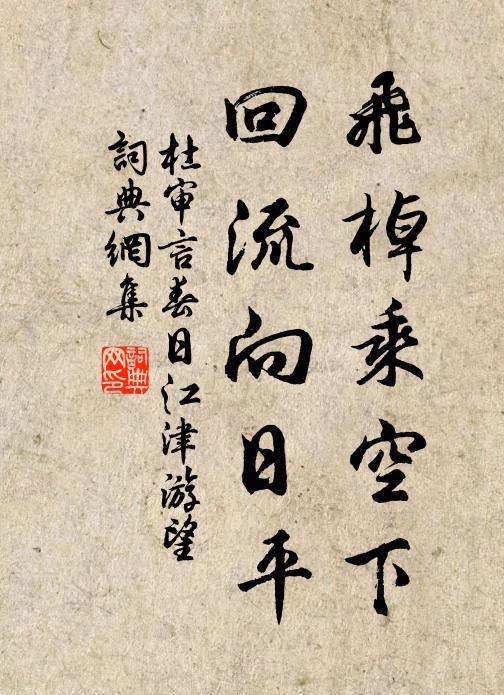 飛棹乘空下
回流向日平
杜审言春日江津游望
詞典網集
詞典
网印